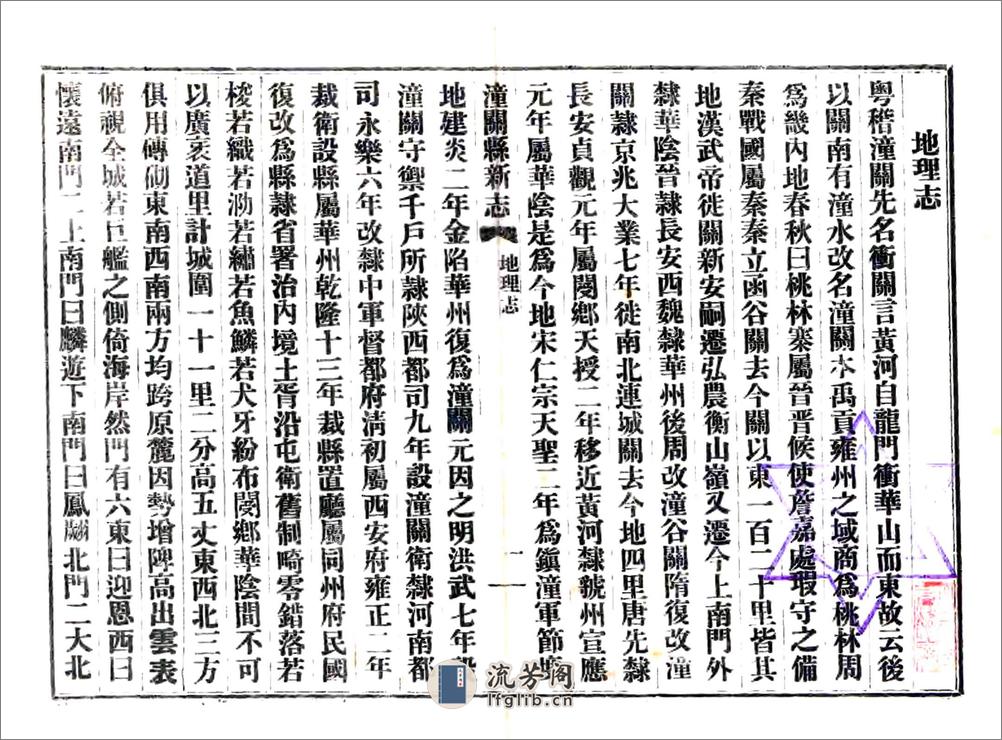 地理志
粤稽潼關先名衝關言黃河自龍門衝華山而東故云後
以關南有潼水改名潼關本禹貢雍州之域商爲桃林周
爲畿內地春秋曰桃林寨屬晉晉候使詹嘉處瑕守之備
秦戰國屬秦秦立函谷關去今關以東一百二十里皆其
地漢武帝徙關新安嗣遷弘農衡山嶺又遷今上南門外
隸華陰晉隸長安西魏隸華州後周改潼谷關隋復改潼
關隸京兆大業七年徙南北連城關去今地四里唐先隸
長安貞觀元年屬閿鄉天授二年移近黃河隸虢州宣應
元年屬華陰是爲今地宋仁宗天聖二年爲鎭潼軍節度
潼關縣新志 地理志 一
地建炎二年金陷華州復爲潼關元因之明洪武七年設
潼關守禦千戶所隸陝西都司九年設潼關衛隸河南都
司永樂六年改隸中軍督都府淸初屬西安府雍正二年
裁衛設縣屬華州乾隆十三年裁縣置廳屬同州府民國
復改爲縣隸省署治內境土胥沿屯衛舊制畸零錯落若
梭若織若泐若繡若魚鱗若犬牙紛布閿鄉華陰間不可
以廣袤道里計城圍一十一里二分高五丈東西北三方
俱用磚砌東南西南兩方均跨原麓因勢增陴高出雲表
俯視全城若巨艦之側倚海岸然門有六東曰迎恩西曰
懷遠南門二上南門曰麟遊下南門曰鳳翽北門二大北
流芳閣
lfglib.cn